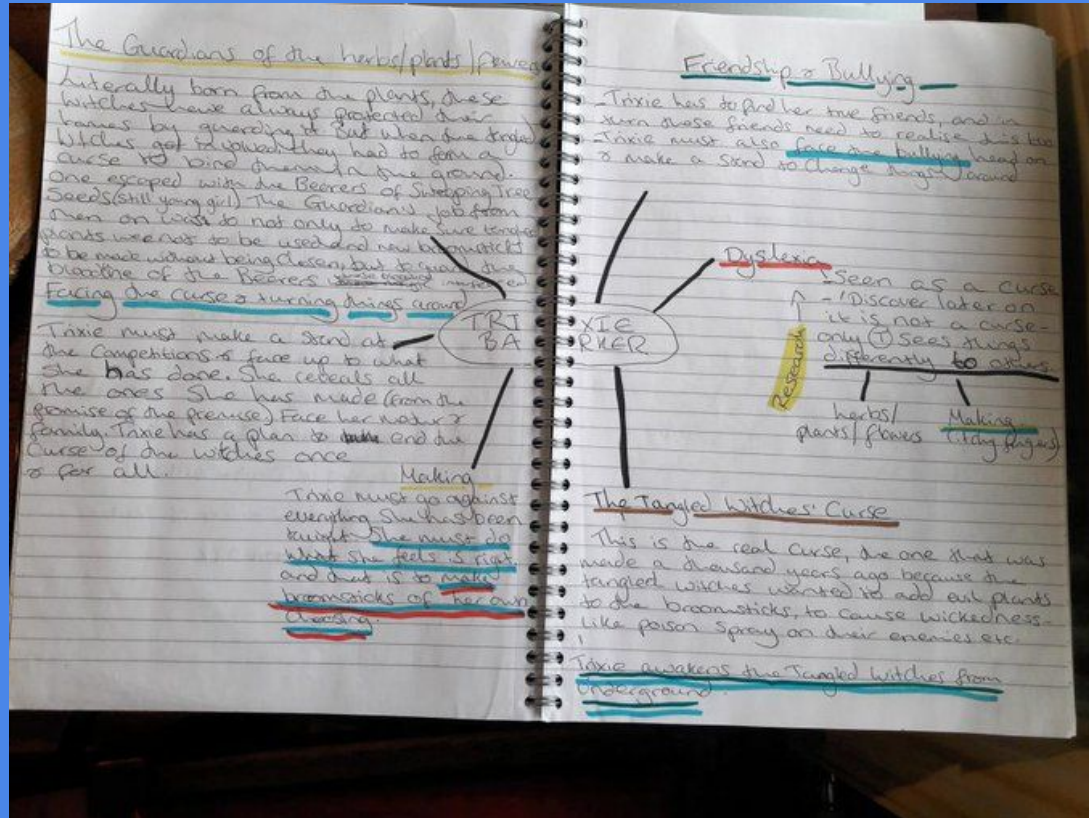 The Guardians of the herbs/plants/flowers
Literally born from the plants, these
witches have always protected their
homes by guarding it. But when the tangled
witches got they had to form a
curse to bind them in the ground.
One escaped with the Bearers of Sweeping Tree
Seeds (still young girl) The Guardian's job from
then on was to not only to make sure tangled
plants were not to be used and new broomsticks
to be made without being chosen, but to guard the
bloodline of the Bearers
Facing the curse & turning things around
Trixie must make a stand at
the Competitions & face up to what
she has done. She reveals all
the ones she has made (from the
promise of the premise) Face her mother &
family. Trixie has a plan to end the
curse of the witches once
& for all.
Making
Trixie must go against
everything she has been
taught. She must do
what she feels is right
and that is to make
broomsticks of her own
choosing.
TRIXIE
BARKER
Friendship & Bullying
- Trixie has to find her true friends, and in
turn those friends need to realise this too
- Trixie must also face the bullying head on
& make a stand to change things around
Dyslexia
- Seen as a curse
- 'Discover later on
it is not a curse -
only T sees things
differently to others.
Research
herbs/
plants/flowers
Making
(itchy fingers)
The Tangled Witches' Curse
This is the real curse, the one that was
made a thousand years ago because the
tangled witches wanted to add evil plants
to the broomsticks, to cause wickedness -
like poison spray on their enemies etc.
Trixie awakens the Tangled Witches from
Underground.